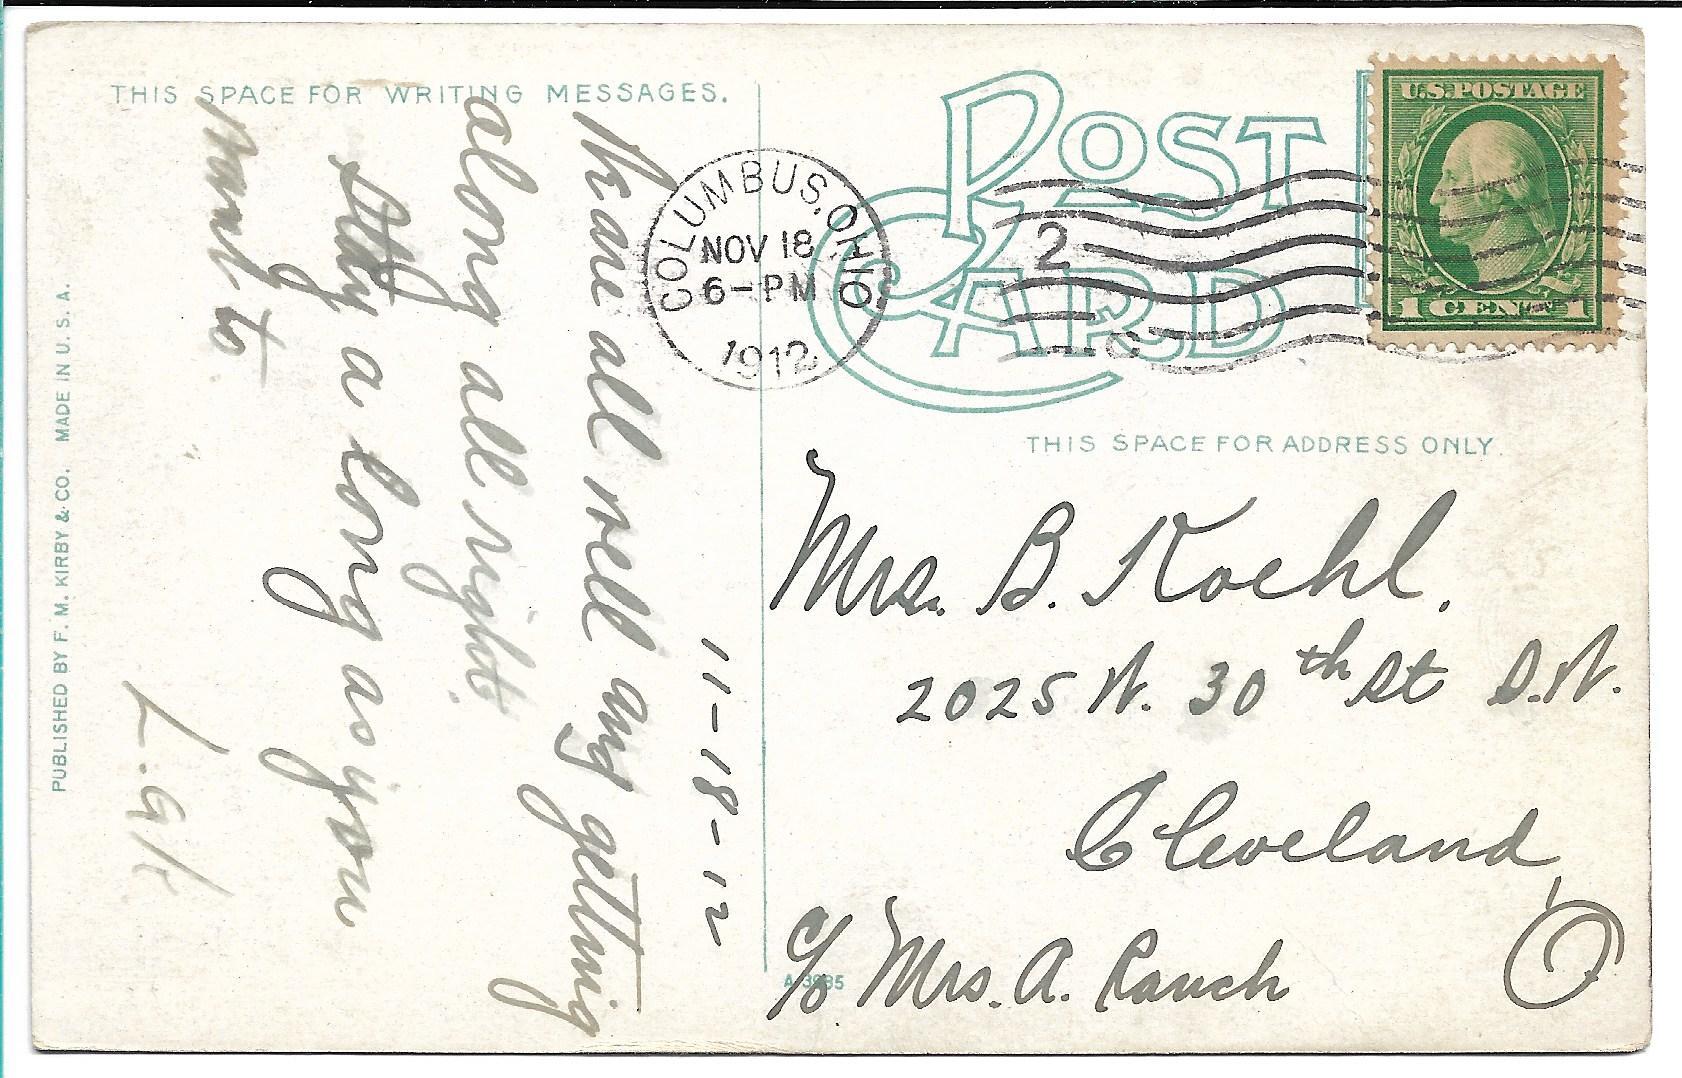 THIS SPACE FOR WRITING MESSAGES.
11-18-12
We are all well and getting
along all right
Stay a long as you
want to
L.A.K.
PUBLISHED BY F. M. KIRBY & CO. MADE IN U. S. A.
POST
CARD
COLUMBUS, OHIO
NOV 18
6-PM
1912
2
C
U.S. POSTAGE
1 CENT 1
THIS SPACE FOR ADDRESS ONLY.
Mrs. B. Koehl.
2025 W. 30th St S.W.
Cleveland,
O
c/o Mrs. A. Rauch
A-3985